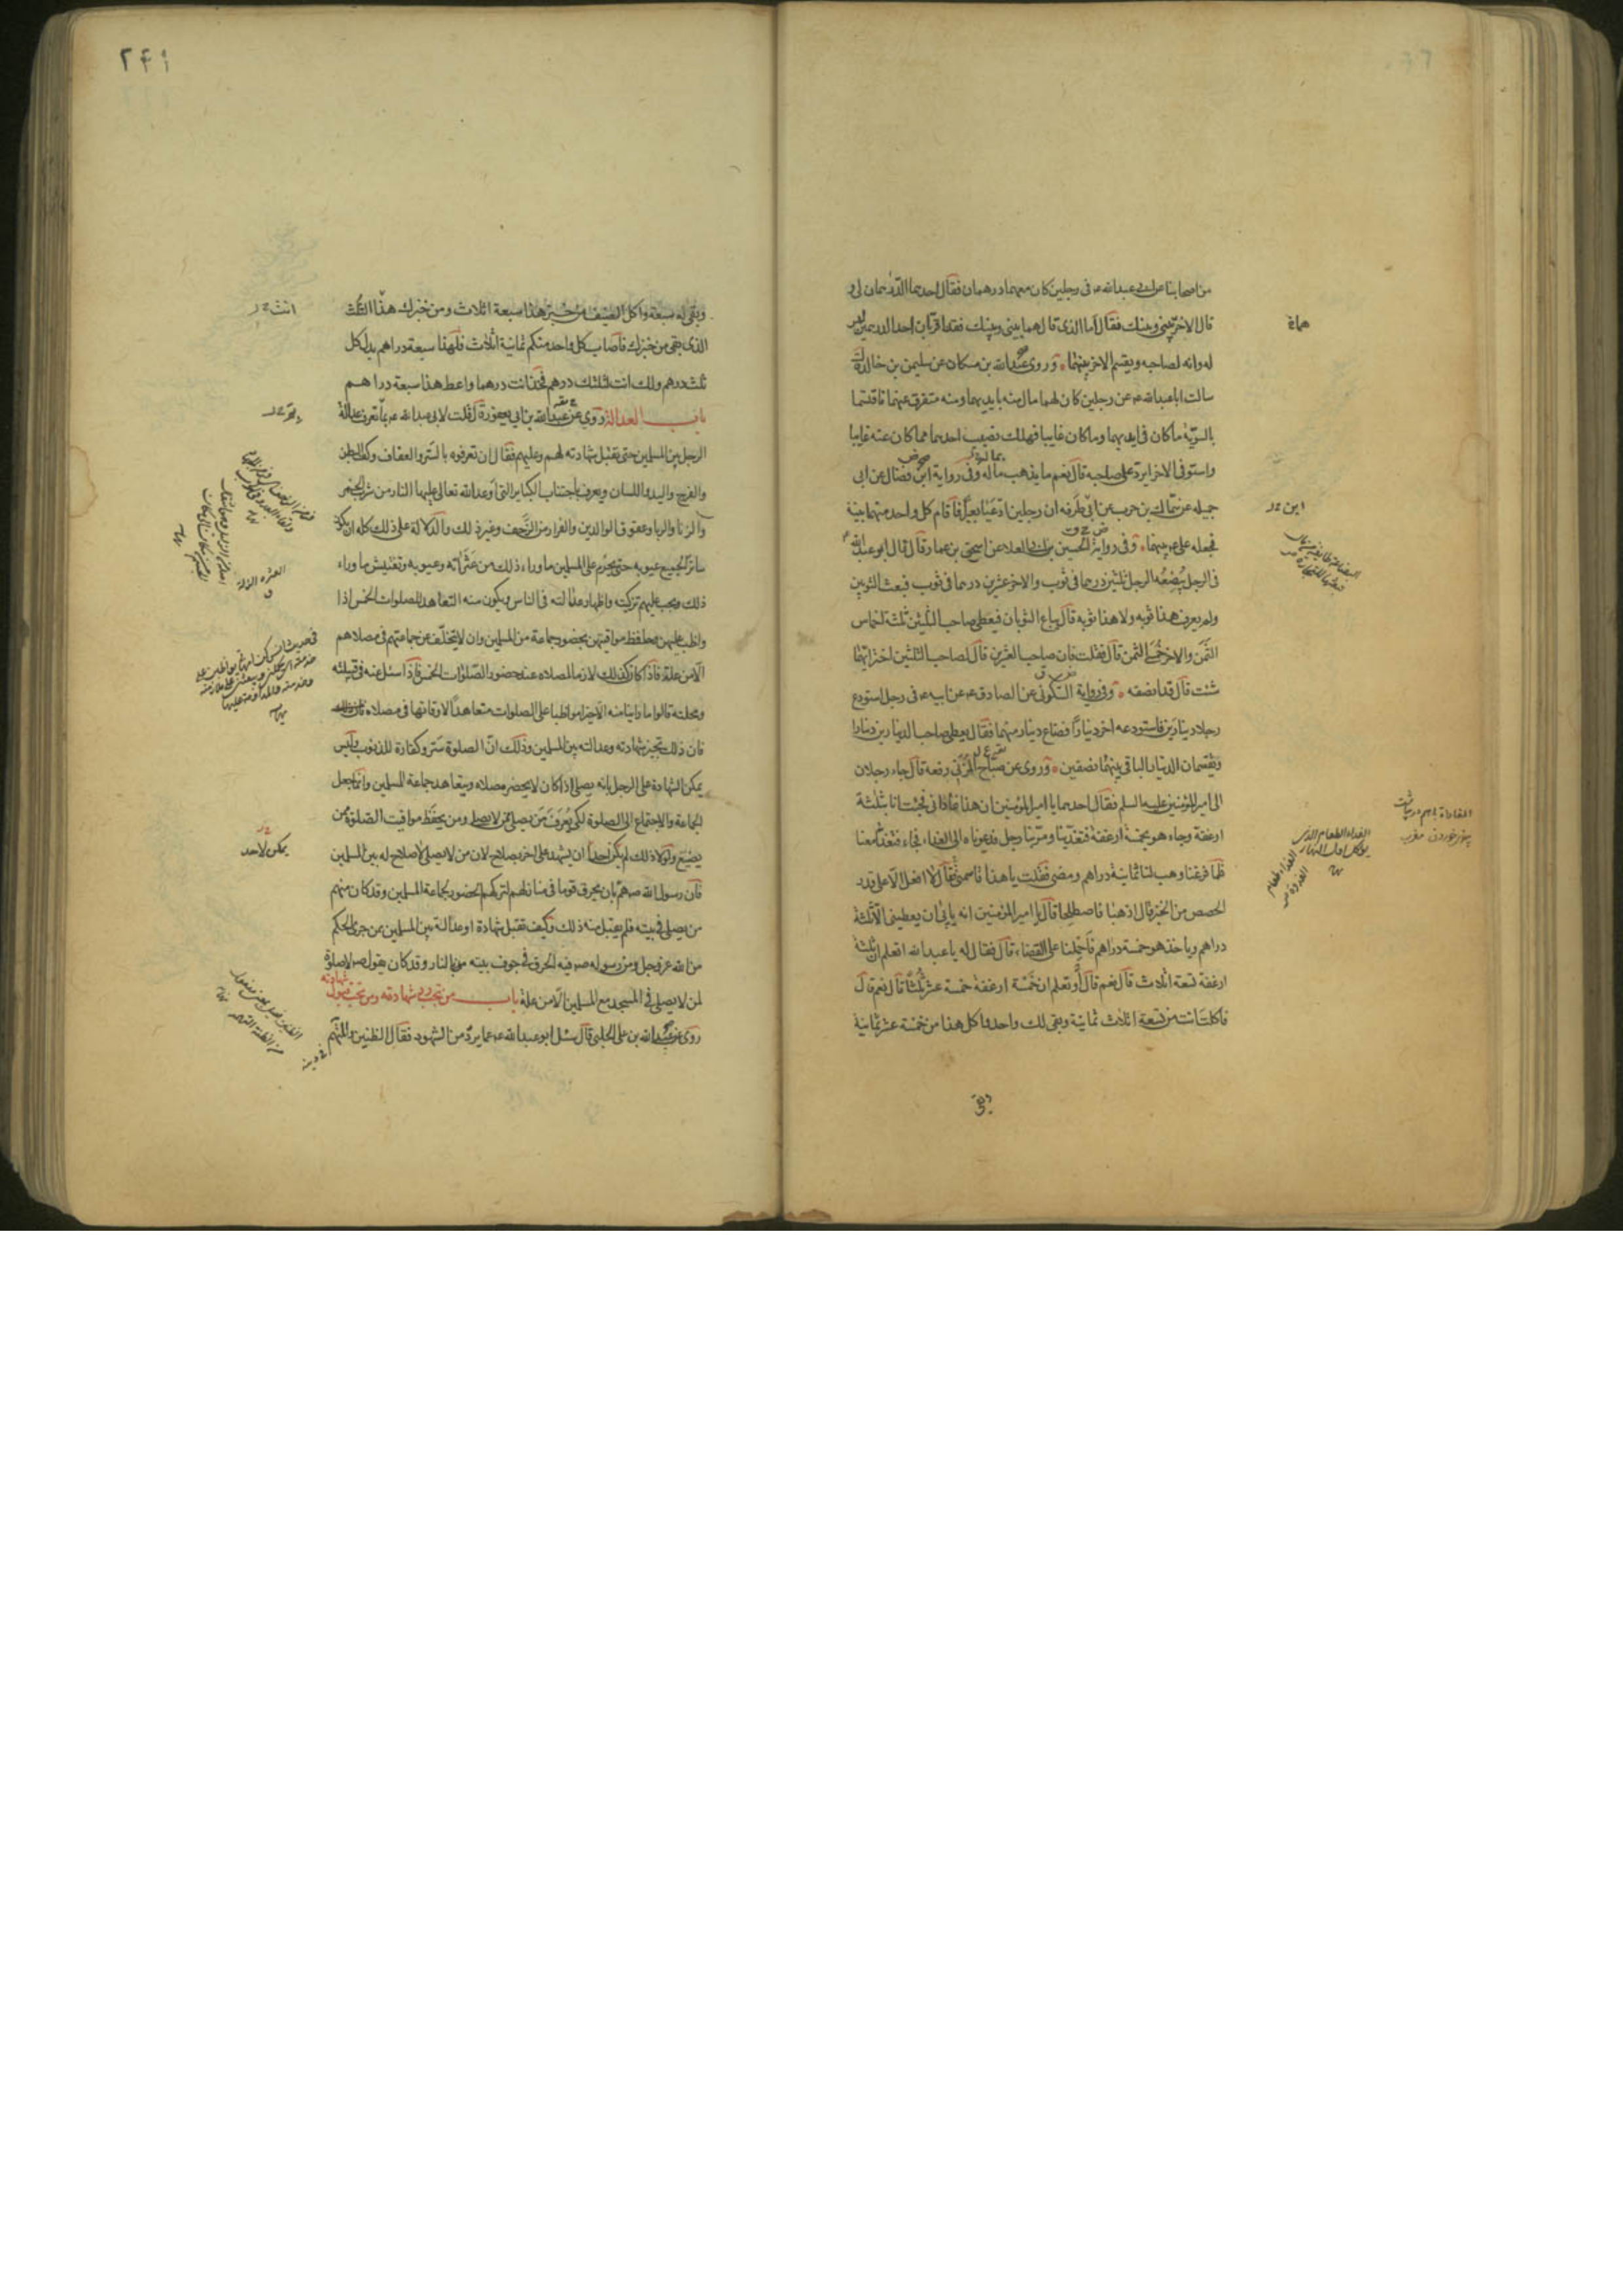 من اصحابنا عن ابى عبد الله ع فى رجلين كان معهما درهمان فقال احدهما الدرهمان لى و
قال الاخر بينى وبينك فقال اما الذى قال هما بينى وبينك فقد اقر بان احد الدرهمين ليس
له وانه لصاحبه ويقسم الاخر بينهما وروى عبد الله بن مسكان عن سليمن بن خالد قال
سالت ابا عبد الله ع عن رجلين كان لهما مال منه بايديهما ومنه متفرق عنهما فاقتسما
بالسوية ما كان فى ايديهما وما كان غايبا فهلك نصيب احدهما مما كان عنه غايبا
واستوفى الاخر ايرد على صاحبه قال نعم ما يذهب بماله وفى رواية ابن فضال عن ابى
جميله عن سماك بن حرب عن ابن طرفه ان رجلين ادعيا بعيرا فاقام كل واحد منهما بينة
فجعله على ع بينهما وفى رواية الحسين بن ابى العلاء عن اسحق بن عمار قال قال ابو عبد الله ع
فى الرجل يبضعه الرجل ثلثين درهما فى ثوب والاخر عشرين درهما فى ثوب فبعث الثوبين
ولم يعرف هذا ثوبه ولا هذا ثوبه قال يباع الثوبان فيعطى صاحب الثلثين ثلثة اخماس
الثمن والاخر خمسى الثمن قال فقلت فان صاحب العشرين قال لصاحب الثلثين اختر ايهما
شئت قال قد انصفه وفى رواية السكونى عن الصادق ع عن ابيه ع فى رجل استودع
رجلا دينارين فاستودعه اخر دينارا فضاع دينار منهما فقال يعطى صاحب الدينارين دينارا
ويقتسمان الدينار الباقى بينهما نصفين وروى عن صباح المزنى رفعه قال جاء رجلان
الى امير المؤمنين عليه السلم فقال احدهما يا امير المؤمنين ان هذا غادانى فجئت انا بثلثة
ارغفة وجاء هو بخمسة ارغفة فتغدينا ومر بنا رجل فدعوناه الى الغداء فجاء فتغدى معنا
فلما فرغنا وهب لنا ثمانية دراهم ومضى فقلت يا هذا قاسمنى فقال لا افعل الا على قدر
الحصص من الخبز قال اذهبا فاصطلحا قال يا امير المؤمنين انه يابى ان يعطينى الا ثلثة
دراهم وياخذ هو خمسة دراهم فاحملنا على القضاء قال فقال له يا عبد الله اتعلم ان ثلثة
ارغفة تسعة اثلاث قال نعم قال وتعلم ان خمسة ارغفة خمسة عشر ثلثا قال نعم قال
فاكلت انت من تسعة اثلاث ثمانية وبقى لك واحد واكل هذا من خمسة عشر ثمانية
وبقى
الغداء الطعام الذى
يوكل اول النهار
٢٤١
وبقى له سبعة واكل الضيف من خبز هذا سبعة اثلاث ومن خبزك هذا الثلث
الذى بقى من خبزك فاصاب كل واحد منكم ثمانية اثلاث فلهذا سبعة دراهم بدل كل
ثلث درهم ولك انت لثلثك درهم فخذ انت درهما واعط هذا سبعة دراهم
باب العدالة روى عن عبد الله بن ابى يعفور قال قلت لابى عبد الله ع بما تعرف عدالة
الرجل بين المسلمين حتى تقبل شهادته لهم وعليهم فقال ان تعرفوه بالستر والعفاف وكف البطن
والفرج واليد واللسان ويعرف باجتناب الكباير التى اوعد الله تعالى عليها النار من شرب الخمر
والزنا والربا وعقوق الوالدين والفرار من الزحف وغير ذلك والدلالة على ذلك كله ان يكون
ساترا لجميع عيوبه حتى يحرم على المسلمين ما وراء ذلك من عثراته وعيوبه وتفتيش ما وراء
ذلك ويجب عليهم تزكيته واظهار عدالته فى الناس ويكون منه التعاهد للصلوات الخمس اذا
واظب عليهن وحفظ مواقيتهن بحضور جماعة من المسلمين وان لا يتخلف عن جماعتهم فى مصلاهم
الا من علة فاذا كان كذلك لازما لمصلاه عند حضور الصلوات الخمس فاذا سئل عنه فى قبيلته
ومحلته قالوا ما راينا منه الا خيرا مواظبا على الصلوات متعاهدا لاوقاتها فى مصلاه
فان ذلك تجيز شهادته وعدالته بين المسلمين وذلك ان الصلوة ستر وكفارة للذنوب وليس
يمكن الشهادة على الرجل بانه يصلى اذا كان لا يحضر مصلاه ويتعاهد جماعة المسلمين وانما جعل
الجماعة والاجتماع الى الصلوة لكى يعرف من يصلى ممن لا يصلى ومن يحفظ مواقيت الصلوة ممن
يضيع ولولا ذلك لم يكن لاحد ان يشهد على اخر بصلاح لان من لا يصلى لا صلاح له بين المسلمين
فان رسول الله ص هم بان يحرق قوما فى منازلهم لتركهم الحضور لجماعة المسلمين وقد كان منهم
من يصلى فى بيته فلم يقبل منه ذلك وكيف تقبل شهادة او عدالة بين المسلمين ممن جرى الحكم
من الله عز وجل ومن رسوله ص فيه الحرق فى جوف بيته بالنار وقد كان يقول ص لا صلوة
لمن لا يصلى فى المسجد مع المسلمين الا من علة باب من يجب رد شهادته ومن يجب قبول شهادته
روى عن عبيد الله بن على الحلبى قال سئل ابو عبد الله ع عما يرد من الشهود فقال الظنين والمتهم
العثرة الزلة
يمكن لاحد